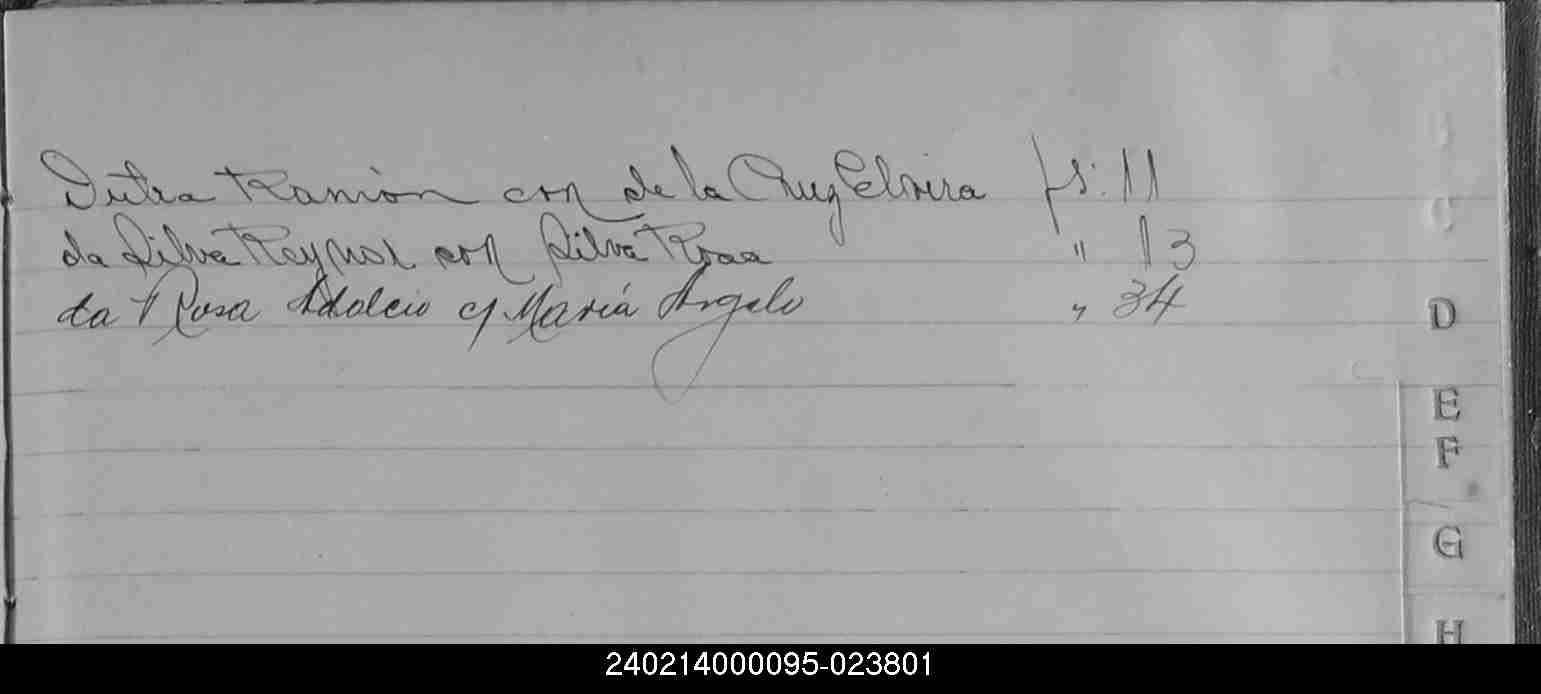 Dutra Ramón con de la Cruz Elvira fs. 11
da Silva con Silva Rosa " 13
da Rosa c/ María Angela " 34
C
D
E
F
G
H
240214000095-023801